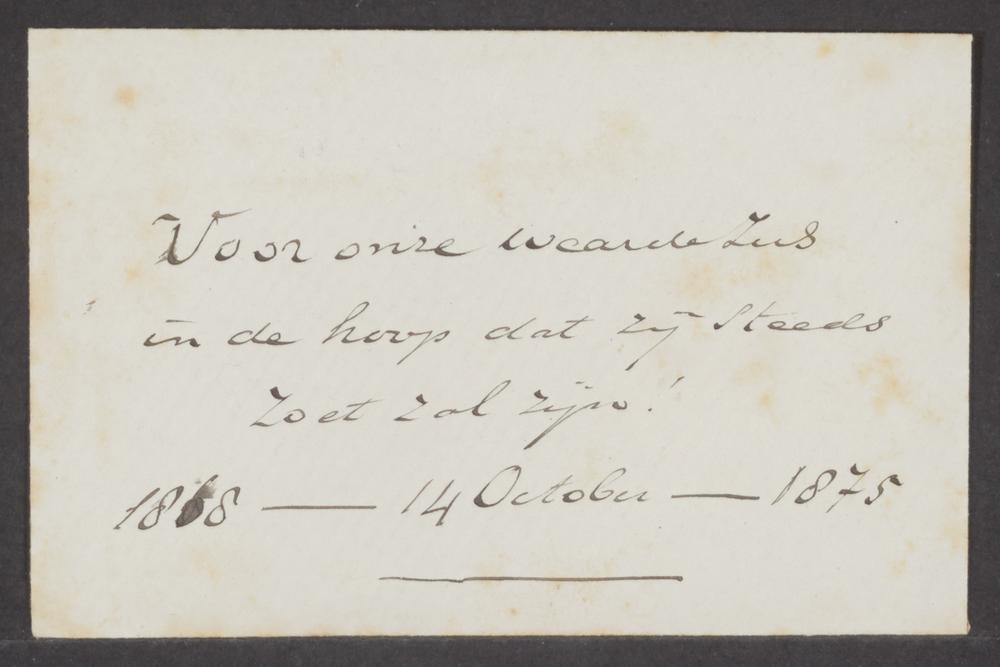 Voor onze waarde Zus
in de hoop dat zij steeds
zoet zal zijn!
1868 — 14 October — 1875